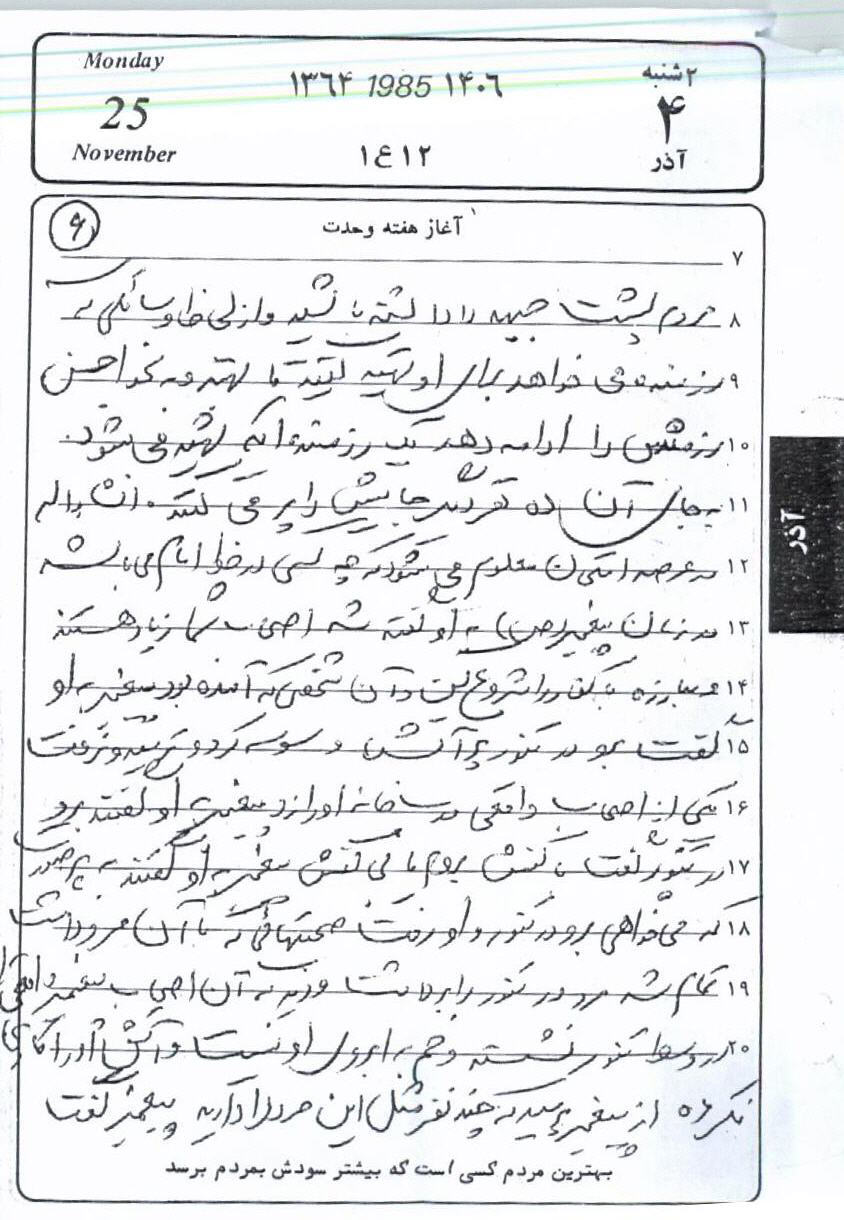 Monday
25
November
۱۳۶۴ 1985 ۱۴۰۶
۱۲ ع ۱
۲شنبه
۴
آذر
۶
آغاز هفته وحدت
۷
۸ مردم پشت جبهه را داشته باشید و از لی وسائلی که
۹ رزمنده می خواهد برای او تهیه کنید تا بهتر و به نحو احسن
۱۰ رزمش را ادامه دهد یک رزمنده ای که شهید می شود
۱۱ به جای آن ده نفر دیگر جایش را پر می کنند. انشاءاله
۱۲ در عرصه امتحان معلوم می شود که چه کسی در خط امام می باشد
۱۳ در زمان پیغمبر (ص) به او گفته شد اصحاب شما زیاد هستند
۱۴ مبارزه با کفر را شروع کن و آن شخصی که آمده بود پیغمبر به او
۱۵ گفت برو در تنور پر آتش وسوسه کرد و ترسید و نرفت
۱۶ یکی از اصحاب واقعی در خانه او را زد پیغمبر به او گفتند برو
۱۷ در تنور گفت با کفش بروم یا بی کفش پیغمبر به او گفتند به هر صورت
۱۸ که می خواهی برو در تنور و او رفت صحبتهائی که با آن مرد داشت
۱۹ تمام شد مرد در تنور را برداشت و دید که آن اصحاب پیغمبر واقعی
۲۰ در وسط تنور نشسته و خم به ابروی او نیست و آتش او را کاری
نکرده از پیغمبر پرسید که چند نفر مثل این مرد را دارید پیغمبر گفت
بهترین مردم کسی است که بیشتر سودش بمردم برسد
آذر